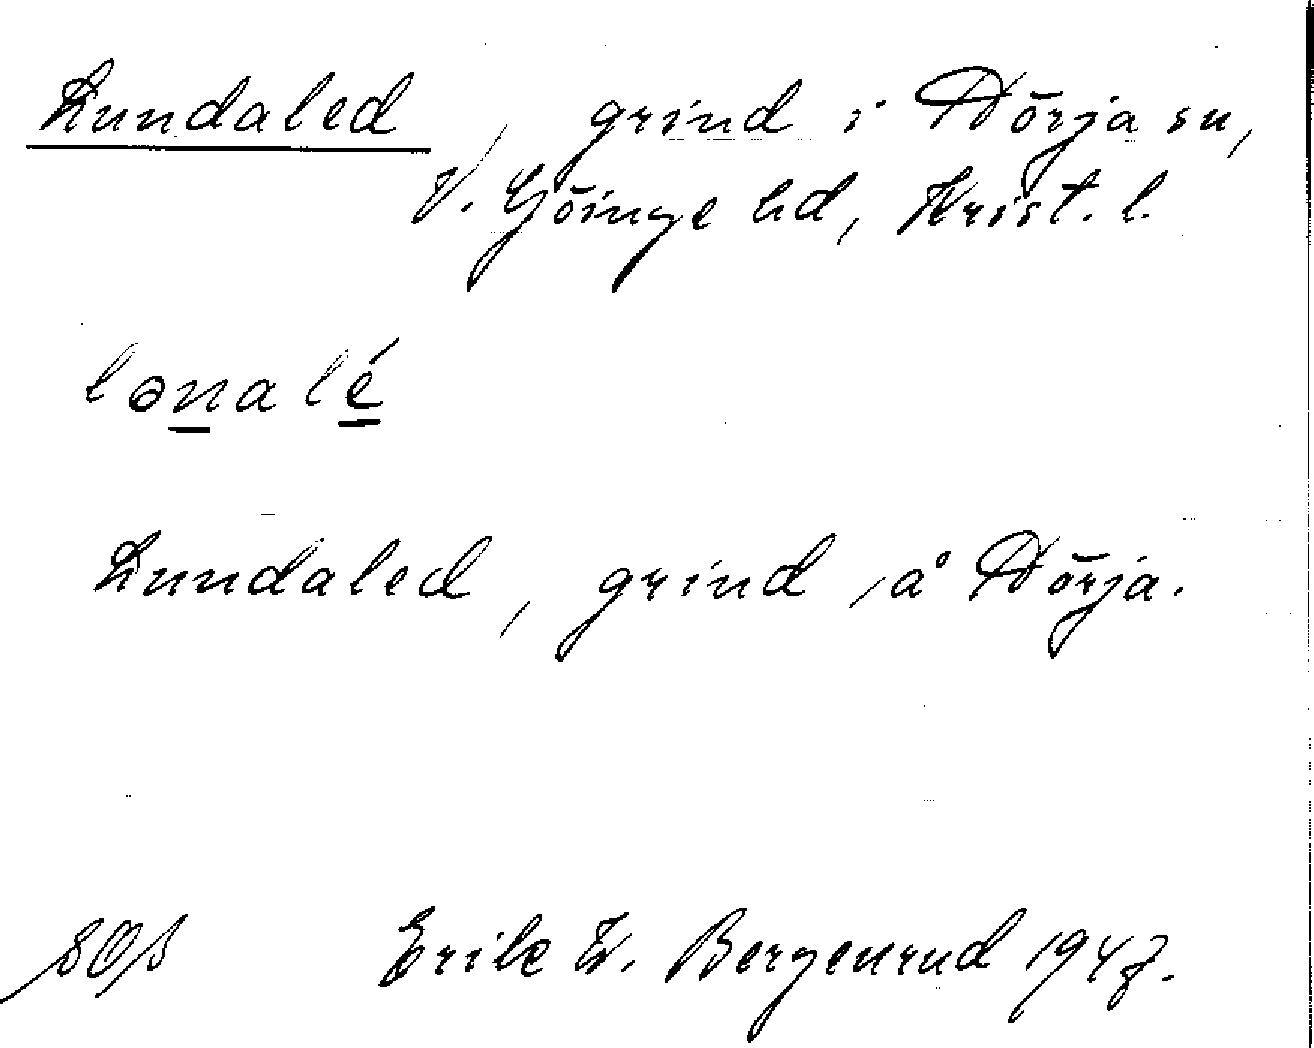 Lundaled, grind i Nörja sn,
V. Göinge hd, Krist. l.
lənalé
Lundaled, grind å Nörja.
Erik W. Bergenrud 1947.